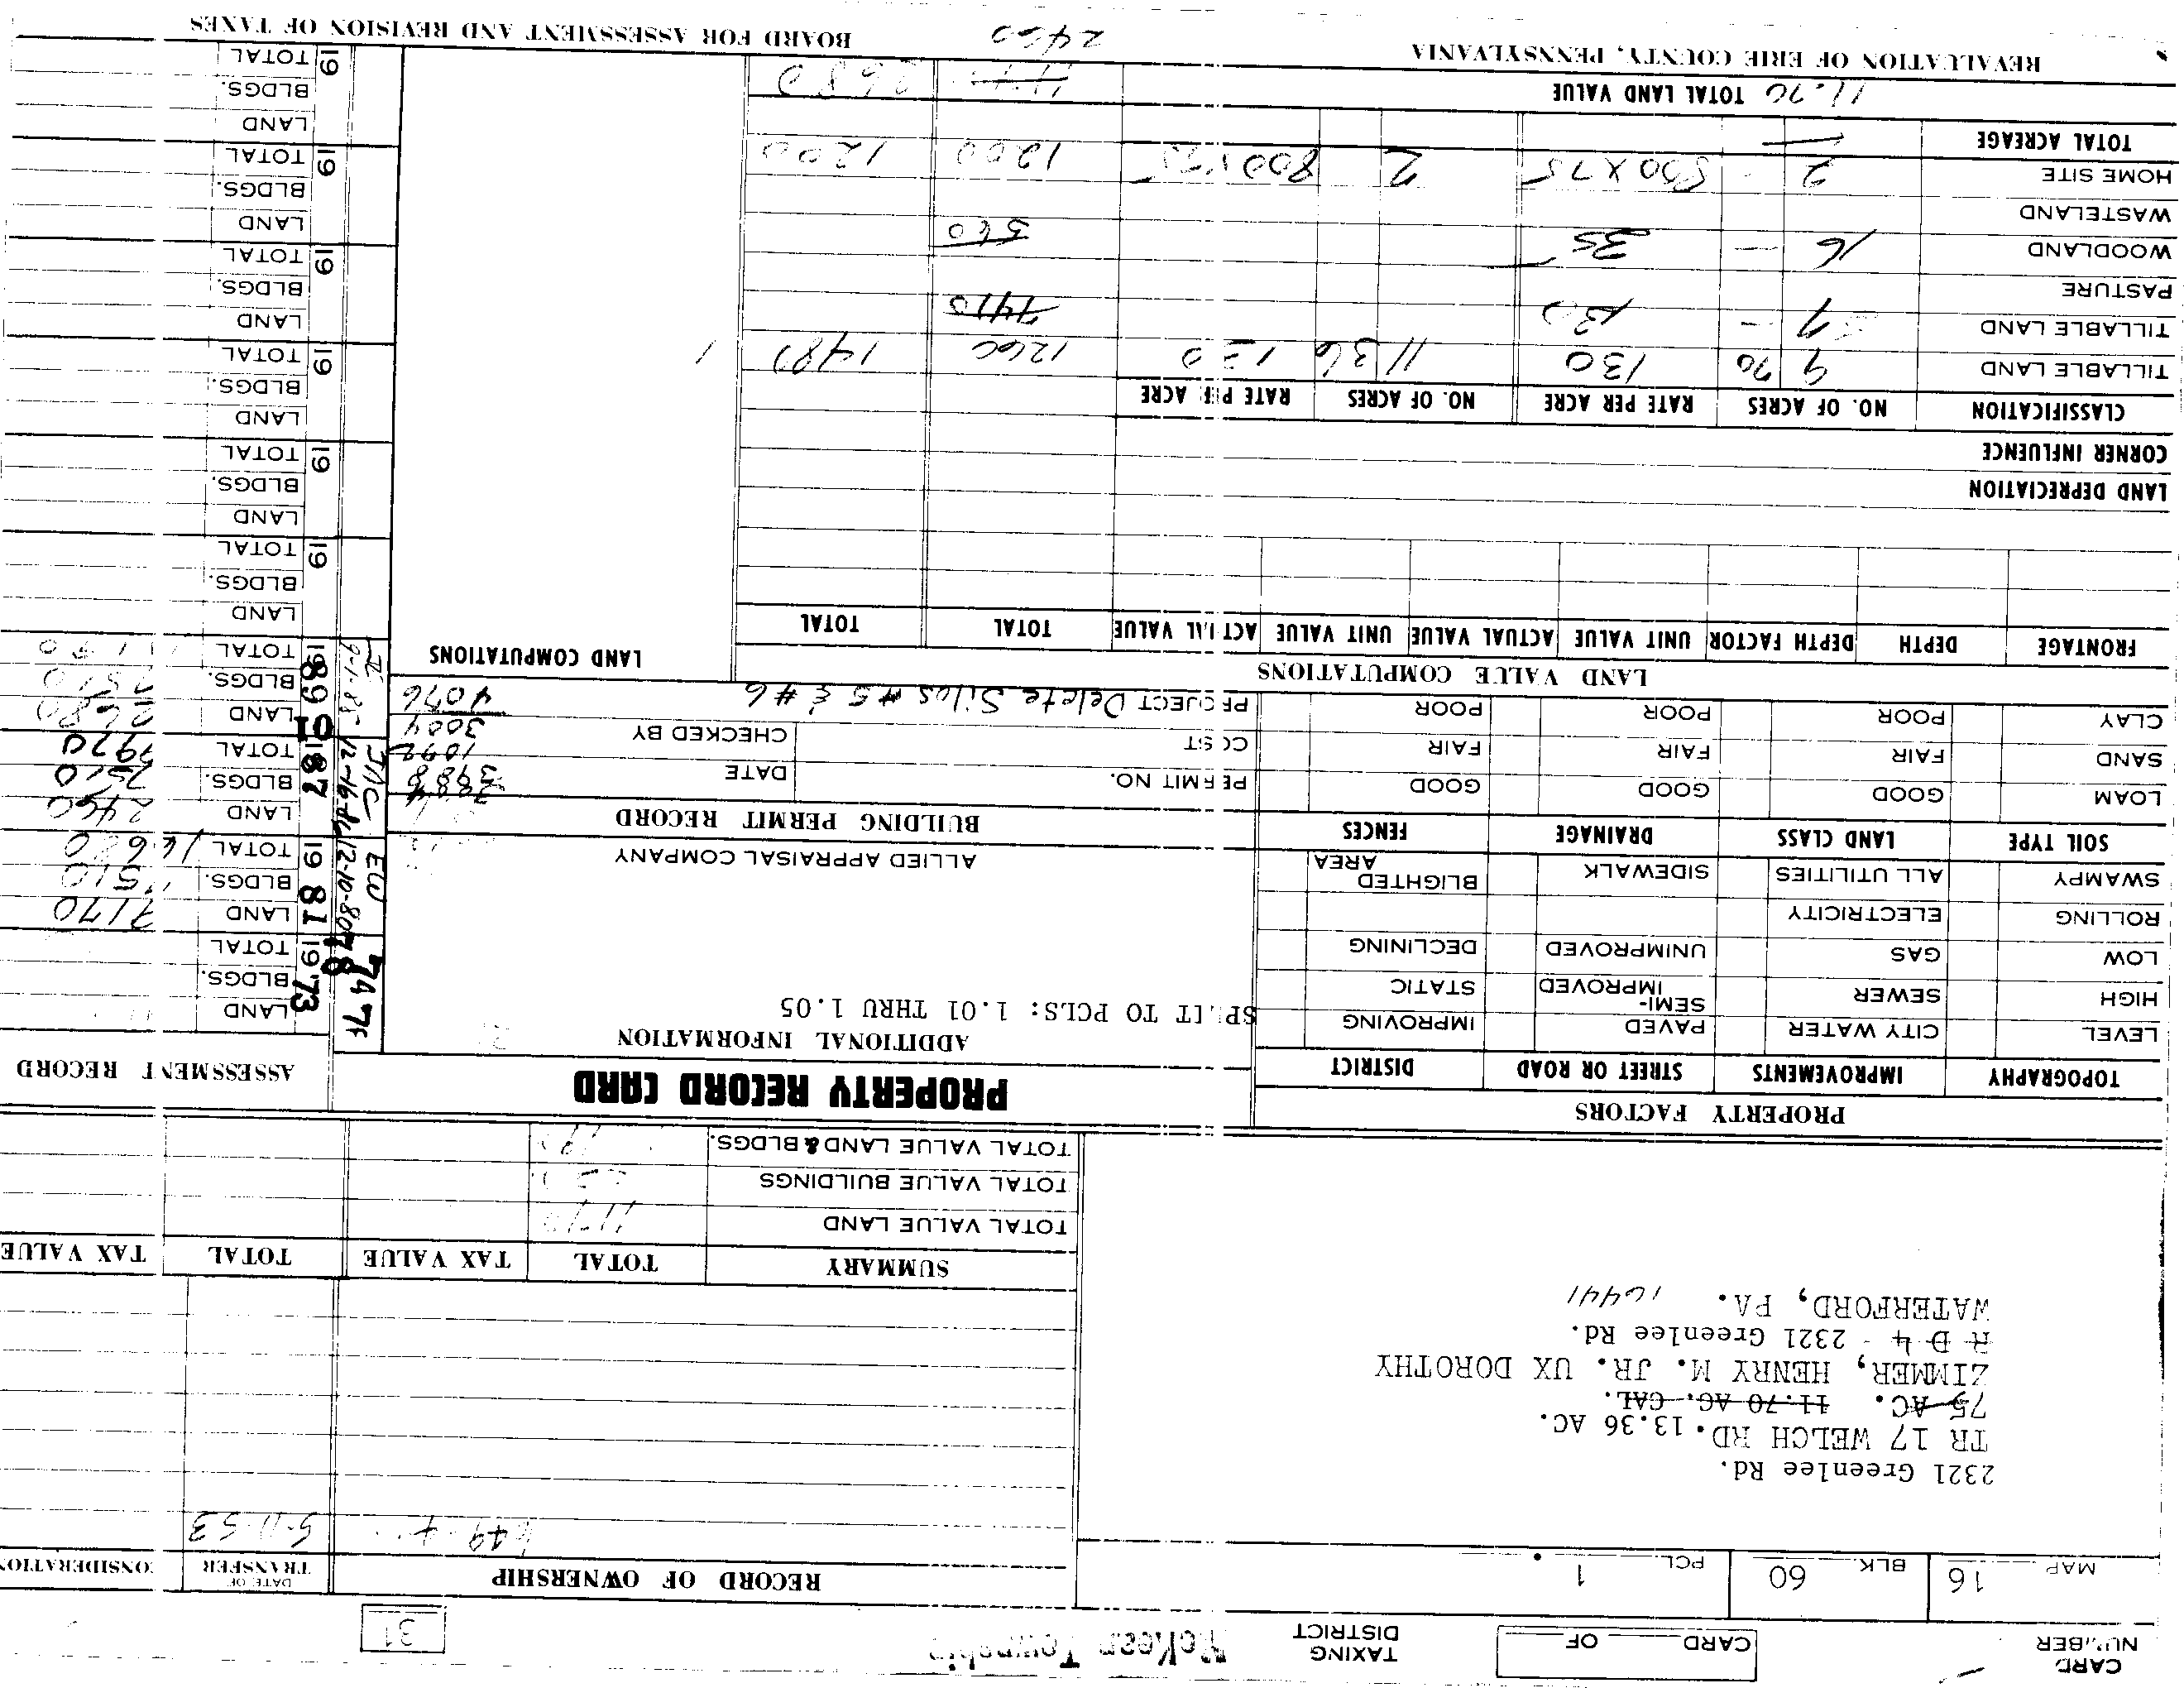 CARD NUMBER
CARD OF
TAXING DISTRICT McKean Township
31
MAP 16 BLK. 60 PCL. 1 .
RECORD OF OWNERSHIP
DATE OF TRANSFER
CONSIDERATION
649
5-11-53
2321 Greenlee Rd.
TR 17 WELCH RD. 13.36 AC.
75 AC. 11.70 AC. CAL.
ZIMMER, HENRY M. JR. UX DOROTHY
R D 4 - 2321 Greenlee Rd.
WATERFORD, PA. 16441
SUMMARY TOTAL TAX VALUE TOTAL TAX VALUE
TOTAL VALUE LAND
TOTAL VALUE BUILDINGS
TOTAL VALUE LAND & BLDGS.
PROPERTY FACTORS
PROPERTY RECORD CARD
ASSESSMENT RECORD
TOPOGRAPHY IMPROVEMENTS STREET OR ROAD DISTRICT
LEVEL CITY WATER PAVED IMPROVING
HIGH SEWER SEMI-IMPROVED STATIC
LOW GAS UNIMPROVED DECLINING
ROLLING ELECTRICITY
SWAMPY ALL UTILITIES SIDEWALK BLIGHTED AREA
SOIL TYPE LAND CLASS DRAINAGE FENCES
LOAM GOOD GOOD GOOD
SAND FAIR FAIR FAIR
CLAY POOR POOR POOR
ADDITIONAL INFORMATION
SPLIT TO PCLS: 1.01 THRU 1.05
ALLIED APPRAISAL COMPANY
BUILDING PERMIT RECORD
PERMIT NO. DATE
COST CHECKED BY
PROJECT Delete Silos #5 & #6
3988
1092
3004
4076
74 7F
78
EW 12-10-80
JMC 12-16-86
9-1-88
1973 LAND
BLDGS.
TOTAL
1981 LAND 7170
BLDGS. 7510
TOTAL 14680
1987 LAND 2460
BLDGS. 7510
TOTAL 9970
1989 LAND 2680
BLDGS. 7510
TOTAL
01
LAND VALUE COMPUTATIONS
LAND COMPUTATIONS
FRONTAGE DEPTH DEPTH FACTOR UNIT VALUE ACTUAL VALUE UNIT VALUE ACTUAL VALUE TOTAL TOTAL
LAND DEPRECIATION
CORNER INFLUENCE
CLASSIFICATION NO. OF ACRES RATE PER ACRE NO. OF ACRES RATE PER ACRE
TILLABLE LAND 9 70 130 11 36 130 1260 1480
TILLABLE LAND
PASTURE
WOODLAND 16 - 35 560
WASTELAND
HOME SITE 2 - 800 X 75 2 800 X 75 1200 1200
TOTAL ACREAGE
11.70 TOTAL LAND VALUE 2680
2460
19 LAND
BLDGS.
TOTAL
19 LAND
BLDGS.
TOTAL
19 LAND
BLDGS.
TOTAL
19 LAND
BLDGS.
TOTAL
19 LAND
BLDGS.
TOTAL
19 LAND
BLDGS.
TOTAL
REVALUATION OF ERIE COUNTY, PENNSYLVANIA
BOARD FOR ASSESSMENT AND REVISION OF TAXES